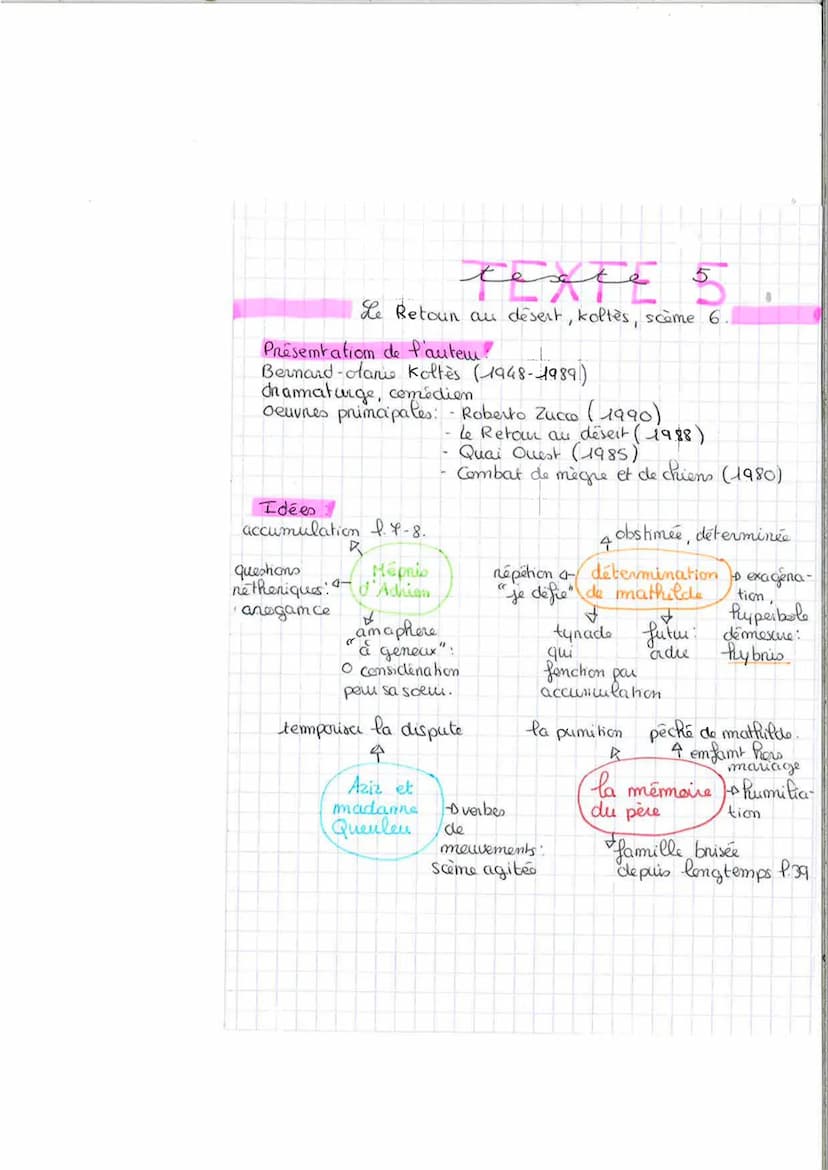 TEXTE 5
texte 5
Le Retour au désert, Koltès, scène 6.
Présentation de l'auteur :
Bernard-Marie Koltès (1948-1989)
dramaturge, comédien
Oeuvres principales : - Roberto Zucco (1990)
- Le Retour au désert (1988)
- Quai Ouest (1985)
- Combat de nègre et de chiens (1980)
Idées :
accumulation l.7-8.
questions
réthoriques :
arrogance
Mépris
d'Adrien
anaphore
"à genoux" :
0 considération
pour sa soeur.
obstinée, déterminée
répétion
"je défie"
détermination
de mathilde
exagéra-
tion,
hyperbole
démesure :
hybris
tirade
qui
fonction par
accumulation
futur :
ordre
temporiser la dispute
Aziz et
madame
Queuleu
verbes
de
mouvements :
scène agitée
la punition
péché de mathilde.
enfant hors
mariage
la mémoire
du père
humilia-
tion
famille brisée
depuis longtemps l.39